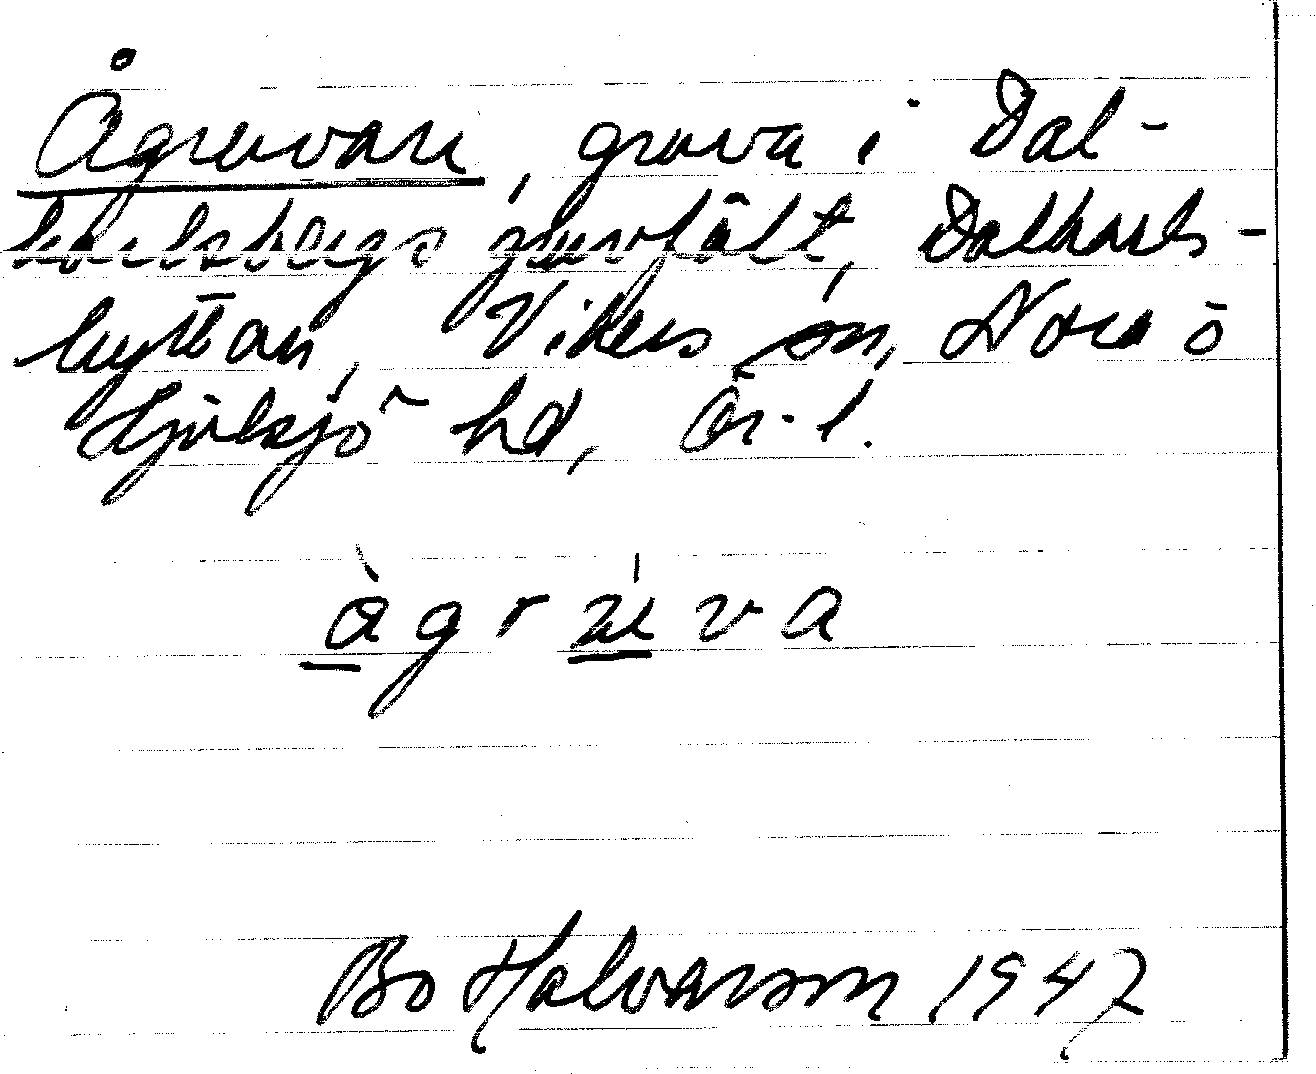 Ågruvan, gruva i Dal-
karlsbergs gruvfält, Dalkarls-
hyttan, Vikers sn, Nora o
Hjulsjö hd, Ör. l.
ågruva
Bo Halvarsson 1947